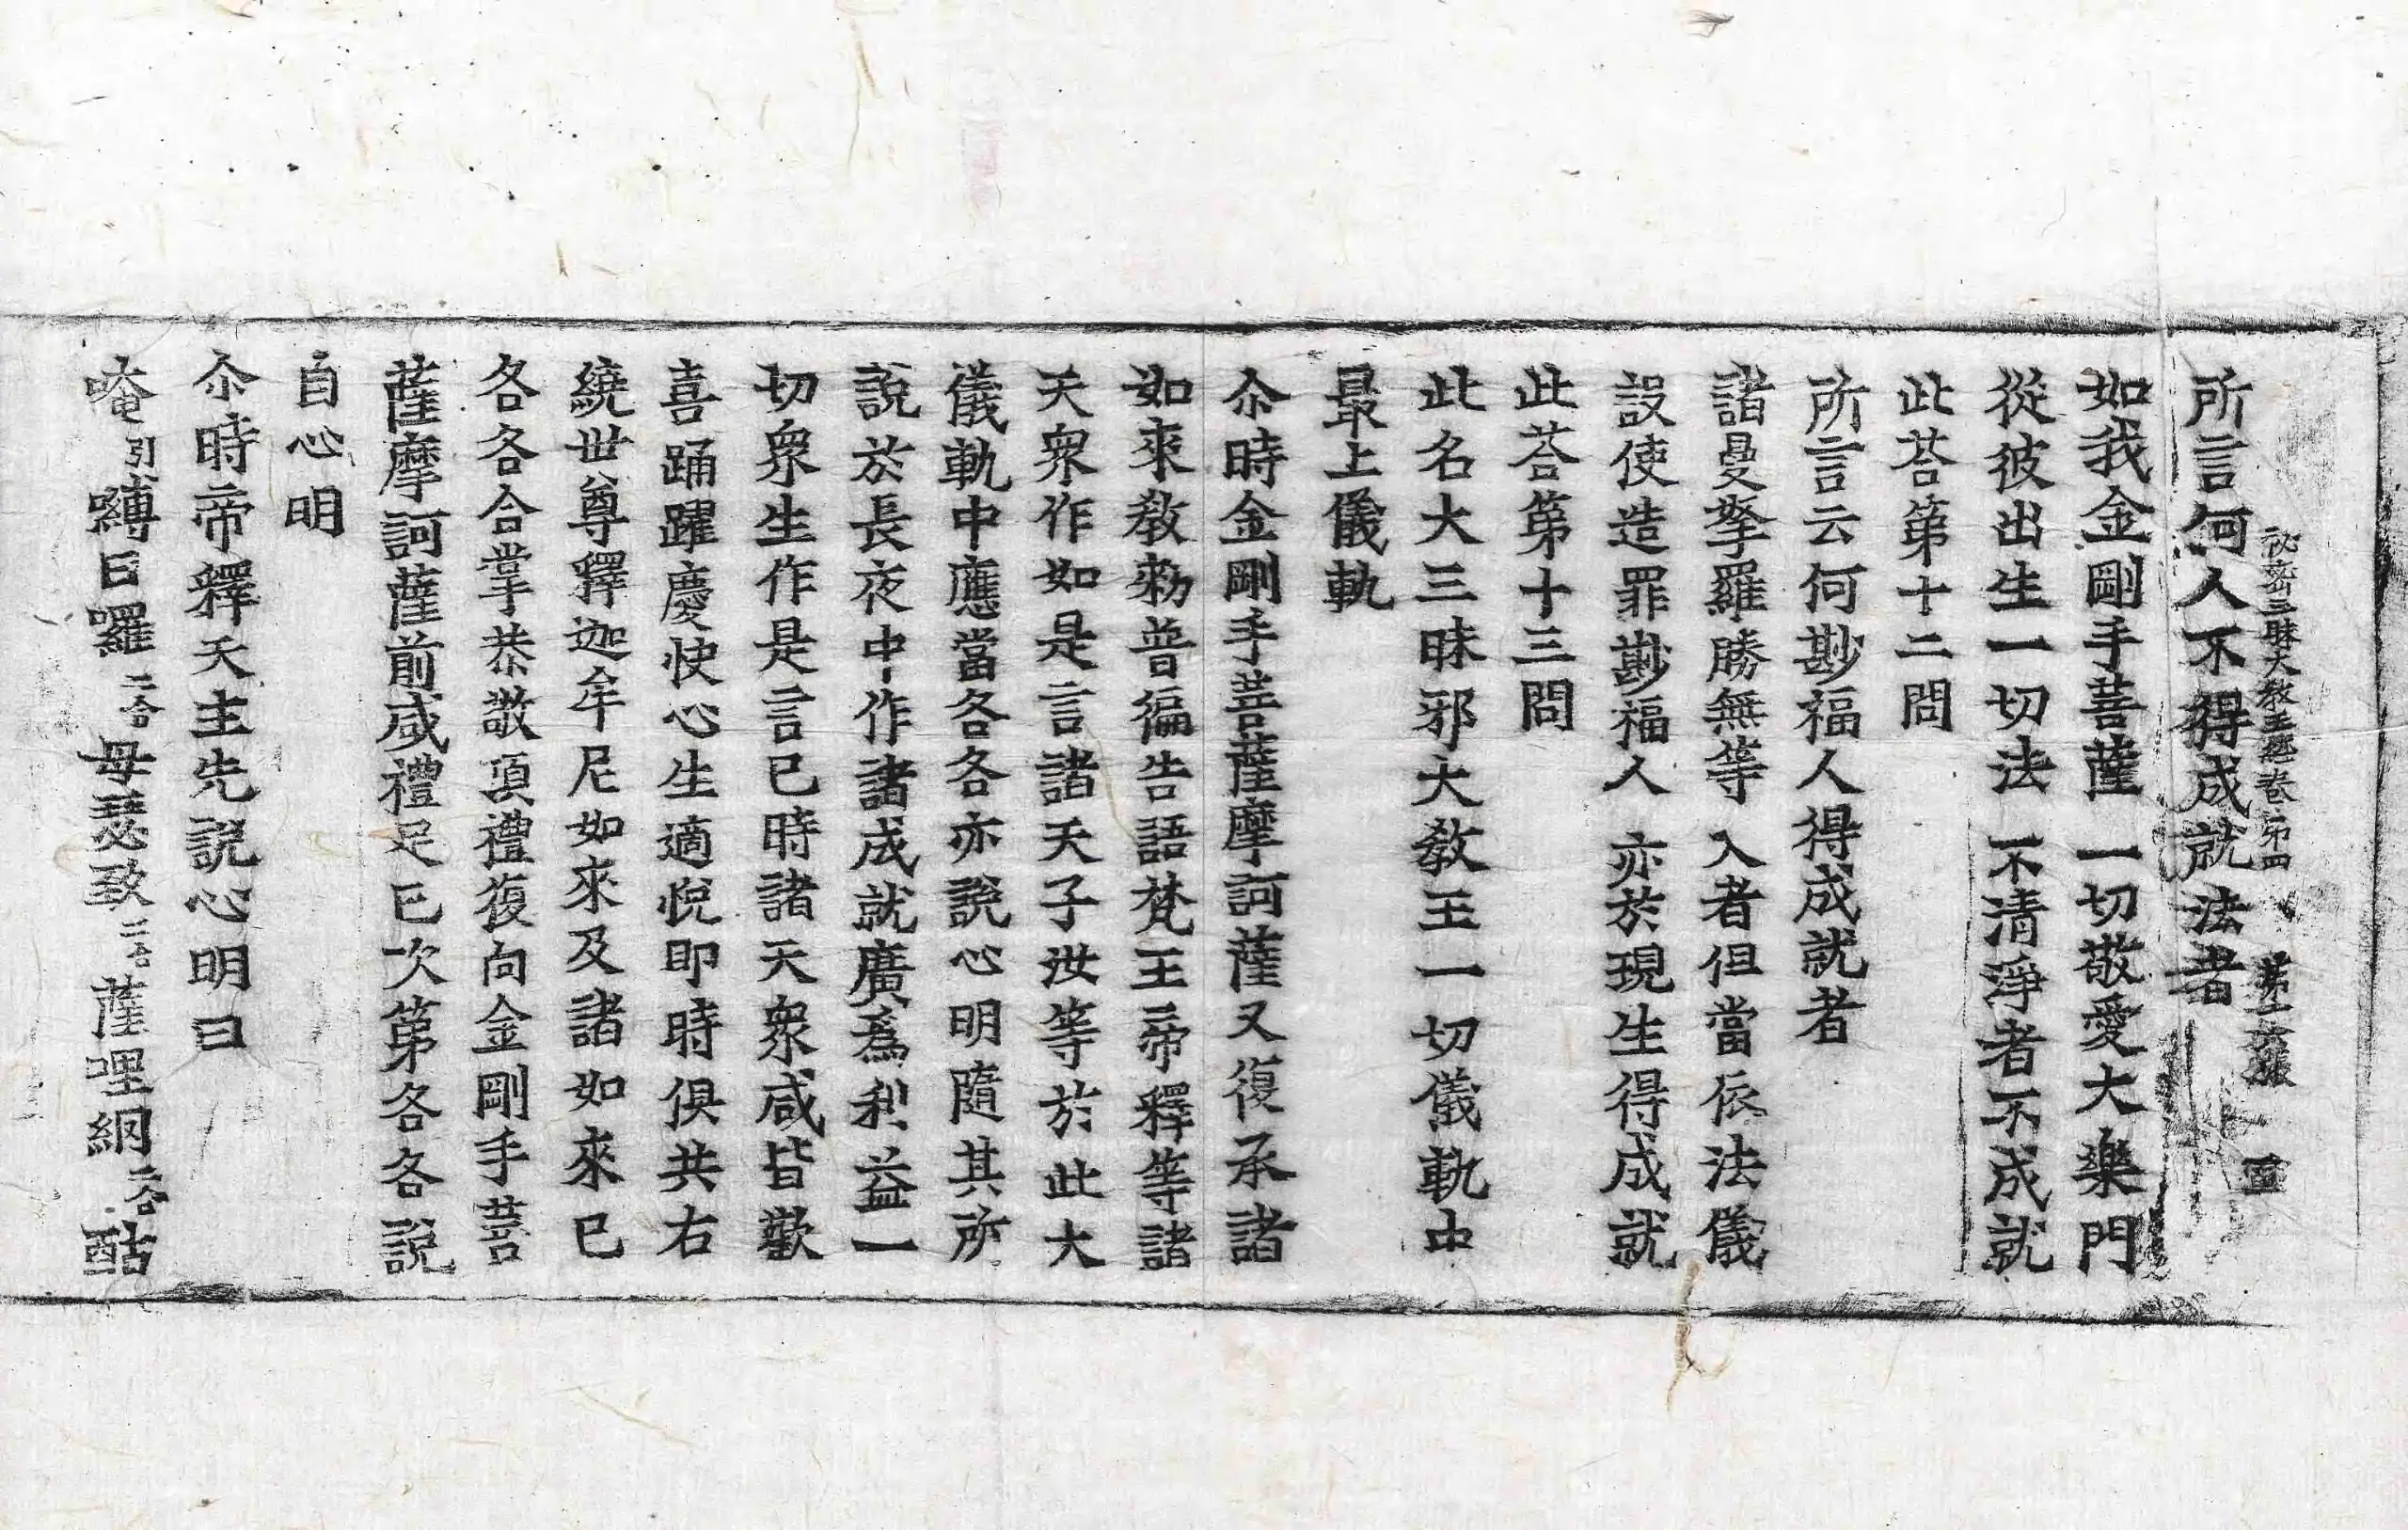 秘密三昧大教王經卷第四　第六張　宣
所言何人不得成就法者
如我金剛手菩薩　一切敬愛大樂門
從彼出生一切法　不清淨者不成就
此荅第十二問
所言云何尠福人得成就者
諸曼拏羅勝無等　入者但當依法儀
設使造罪尠福人　亦於現生得成就
此荅第十三問
此名大三昧邪大教王一切儀軌中
最上儀軌
尒時金剛手菩薩摩訶薩又復承諸
如來教勑普徧告語梵王帝釋等諸
天衆作如是言諸天子汝等於此大
儀軌中應當各各亦說心明隨其所
說於長夜中作諸成就廣爲利益一
切衆生作是言已時諸天衆咸皆歡
喜踊躍慶快心生適悅即時俱共右
繞世尊釋迦牟尼如來及諸如來已
各各合掌恭敬頂禮復向金剛手菩
薩摩訶薩前咸禮足已次第各各說
自心明
尒時帝釋天主先說心明曰
唵引嚩日囉二合母瑟致二合薩哩網二合酤